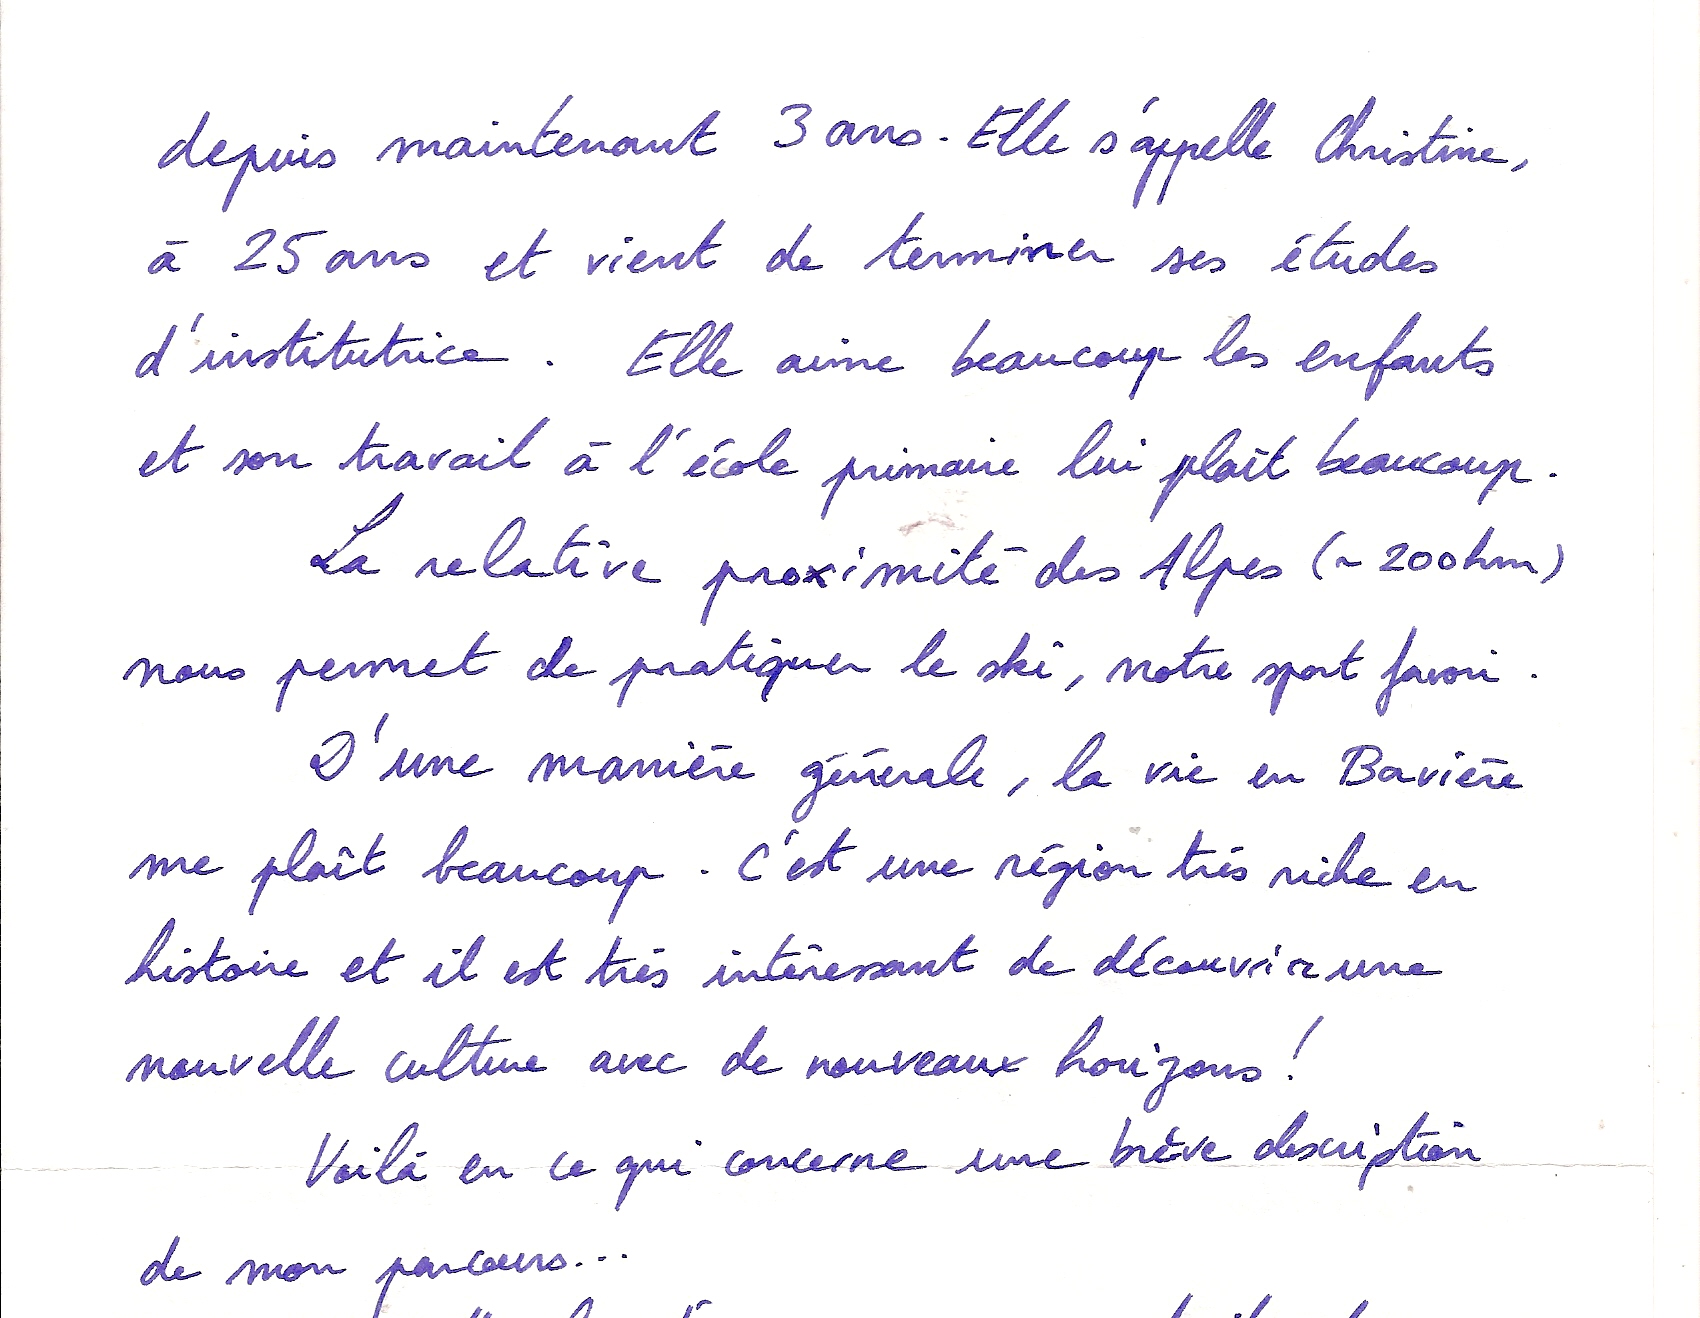 depuis maintenant 3 ans. Elle s'appelle Christine,
à 25 ans et vient de terminer ses études
d'institutrice. Elle aime beaucoup les enfants
et son travail à l'école primaire lui plaît beaucoup.
La relative proximité des Alpes (~ 200km)
nous permet de pratiquer le ski, notre sport favori.
D'une manière générale, la vie en Bavière
me plaît beaucoup. C'est une région très riche en
histoire et il est très intéressant de découvrir une
nouvelle culture avec de nouveaux horizons !
Voilà en ce qui concerne une brève description
de mon parcours...